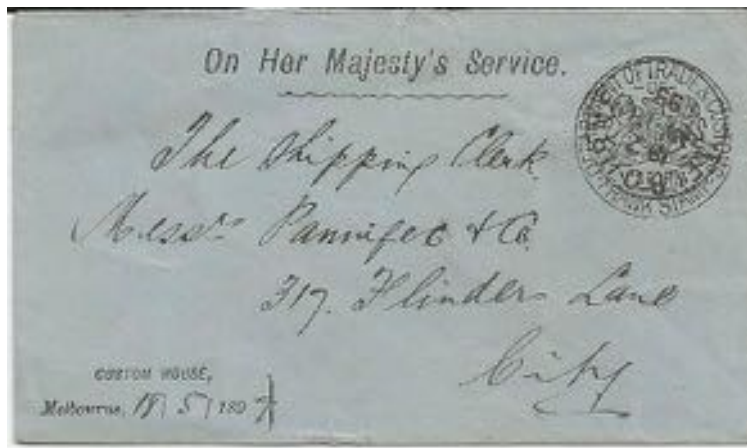 On Her Majesty's Service.
DEPARTMENT OF TRADE & CUSTOMS
The Shipping Clerk
Messrs Pannifex & Co.
317. Flinders Lane
City
CUSTOM HOUSE,
Melbourne, 18/5/1897